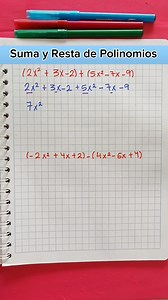 Suma y Resta de Polinomios
(2x² + 3x-2) + (5x²-7x-9)
2x² + 3x-2 + 5x² - 7x -9
7x²
(-2x² + 4x+2) - (4x²-6x+4)